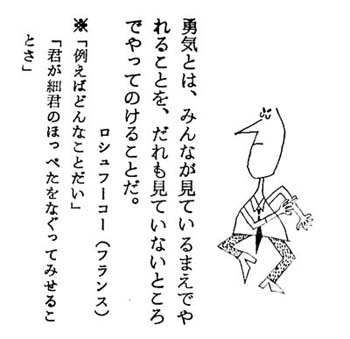 勇気とは、みんなが見ているまえでや
れることを、だれも見ていないところ
でやってのけることだ。
ロシュフーコー（フランス）
※「例えばどんなことだい」
「君が細君のほっぺたをなぐってみせるこ
とさ」